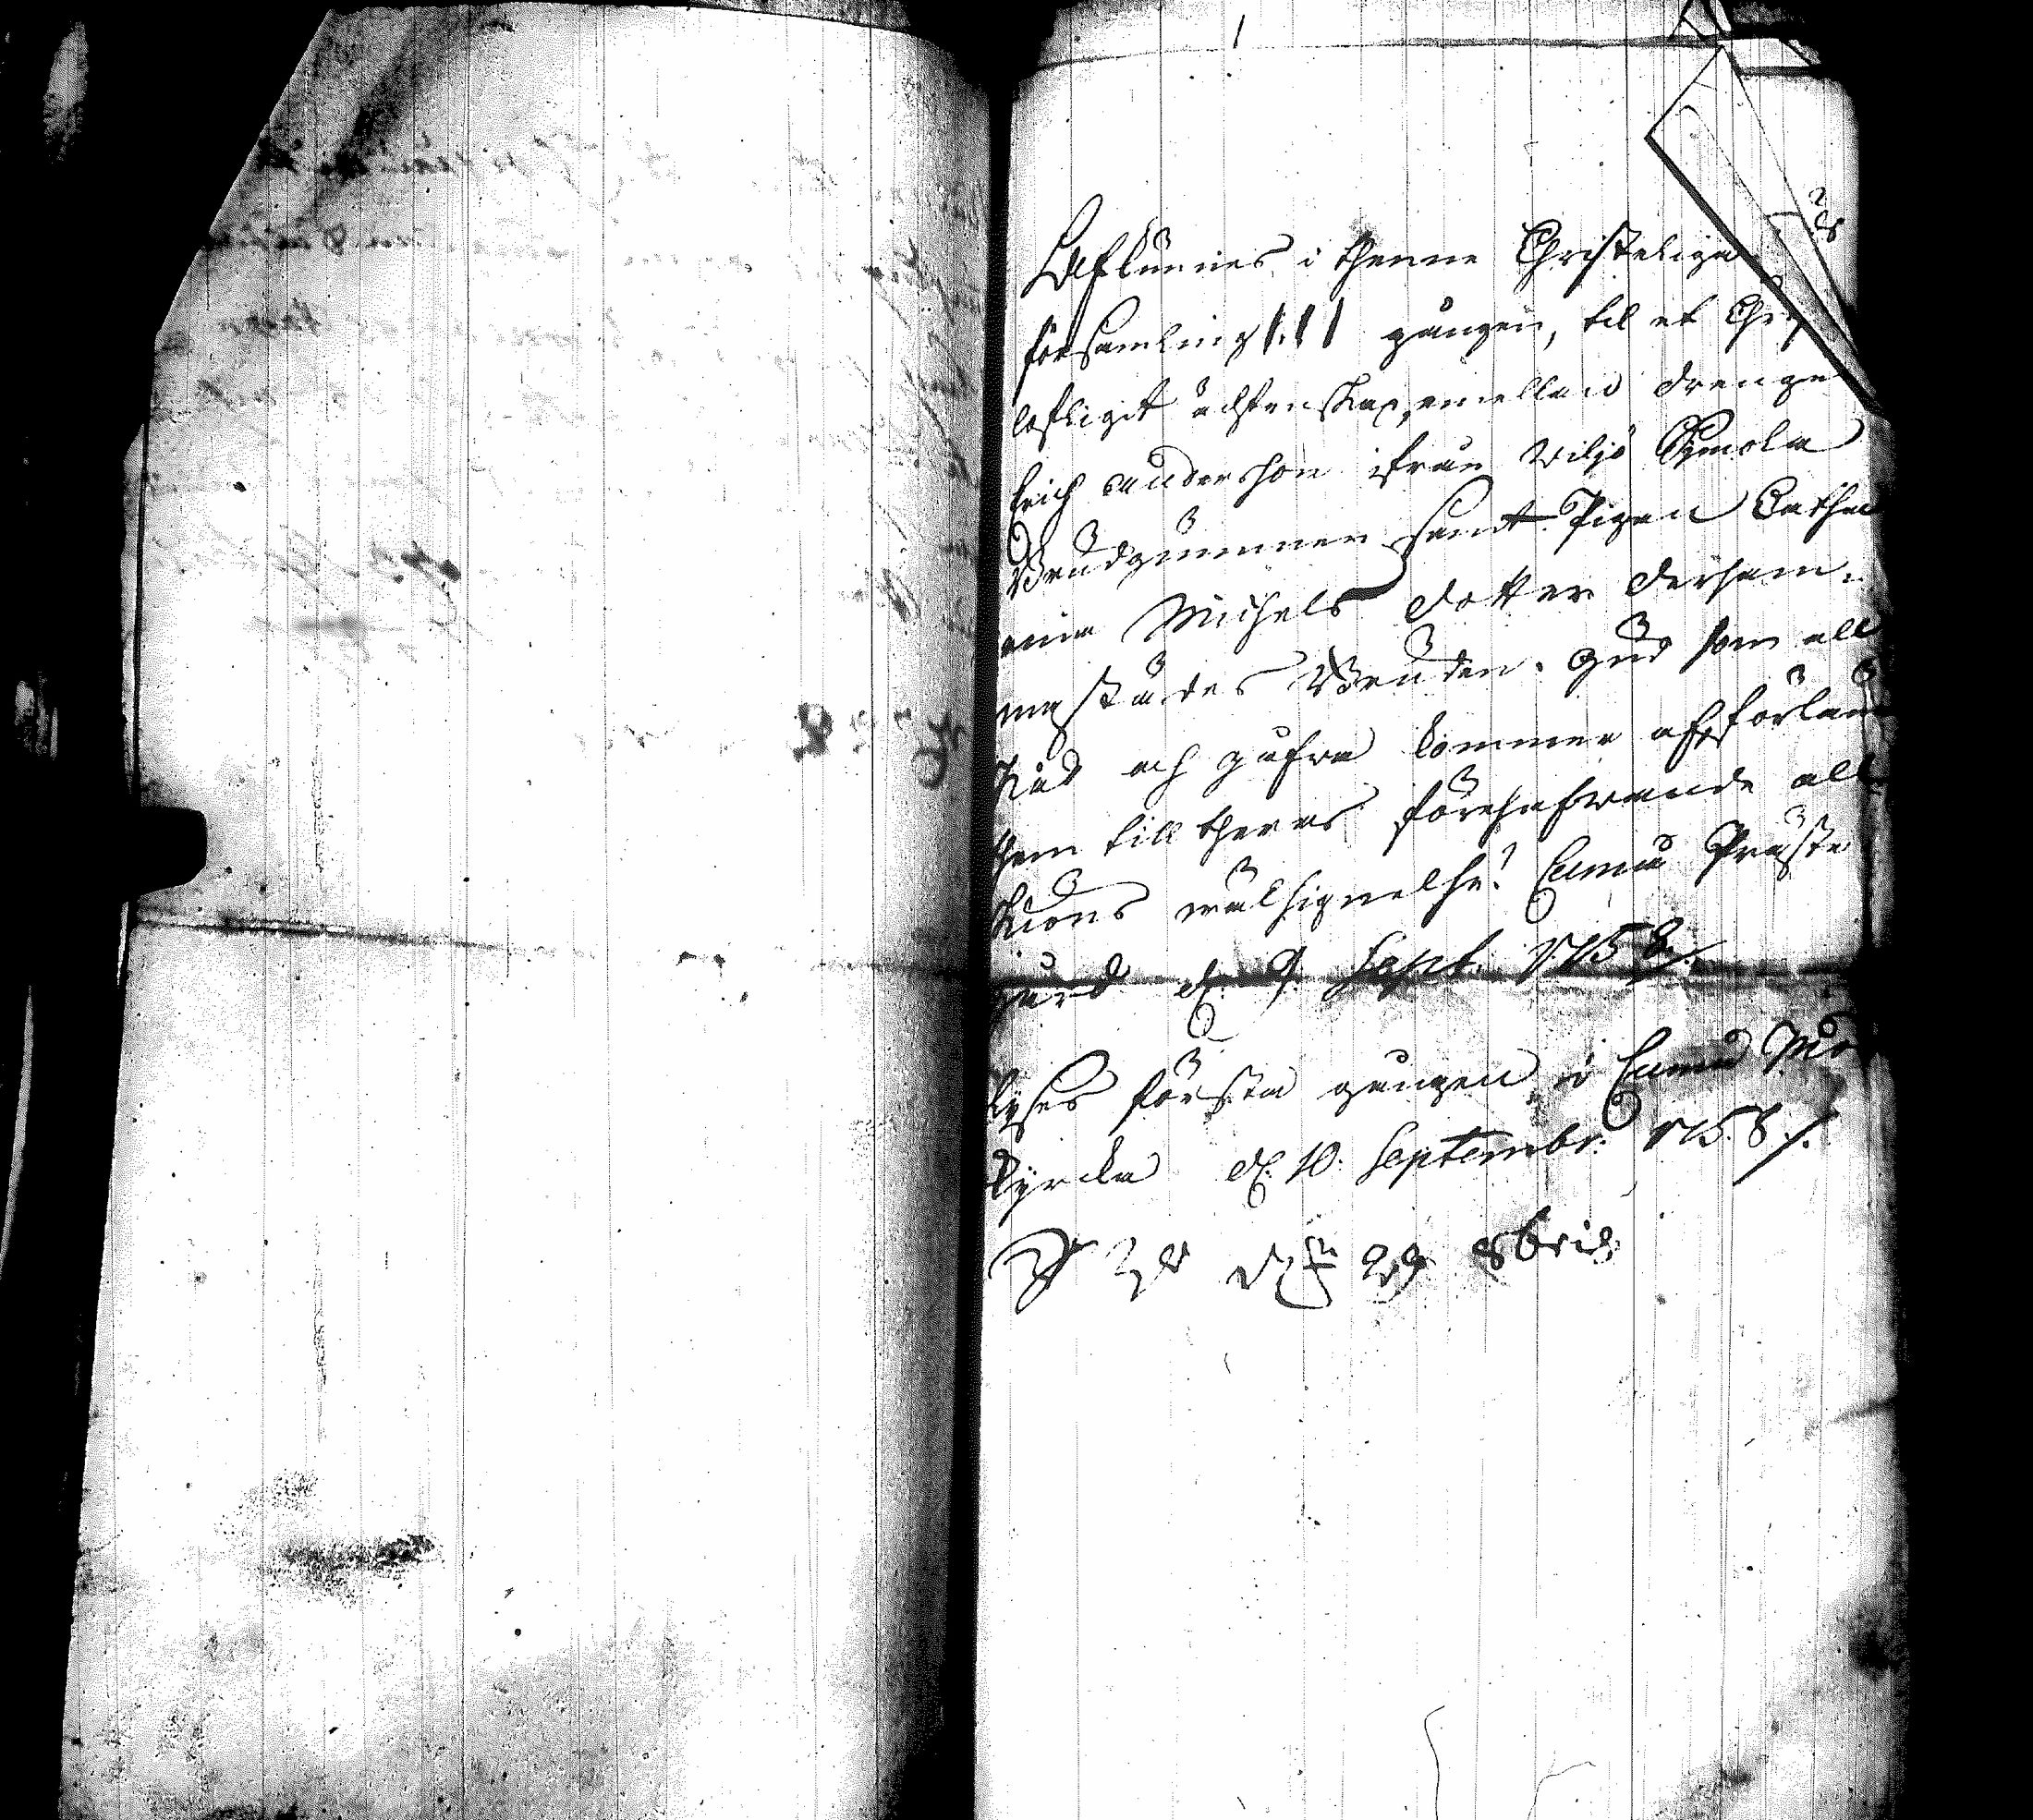 Afkunnes i thenne Christeliga
församling 1. 1 1 gången, til et Chri
lofligit ächtenskap, emellan drenge
Erich Andersson ifrån Viljo
Brudgummen samt Pigan Catha
rina Michels dotter dersam.
mastädes Bruden. Gud som all
Råd och gåfwa kommer af, förläne
them till theras förehafwande all
wälsignelse! Eumå Präste
gård d. 9. Sept. 1758.
lyses första gången i Eumå
Kyrcka d. 10. Septembr. 1758.
29 8bris